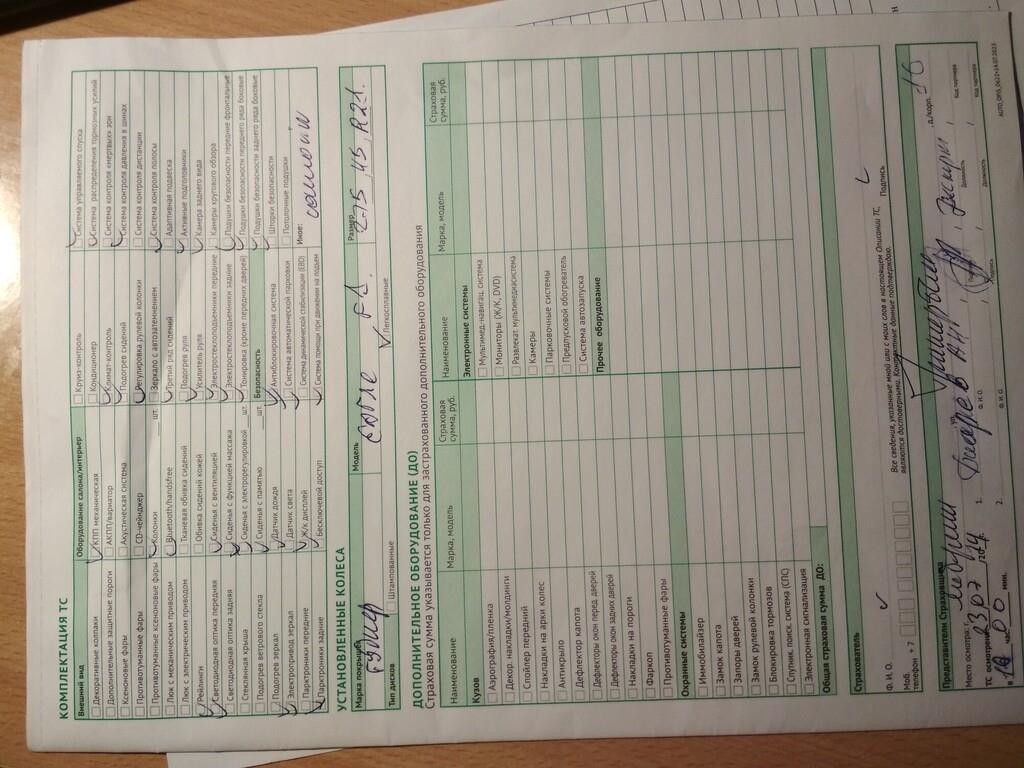 КОМПЛЕКТАЦИЯ ТС
Внешний вид
Декоративные колпаки
Дополнительные защитные пороги
Ксеноновые фары
Противотуманные фары
Противотуманные ксеноновые фары
Люк с механическим приводом
Люк с электрическим приводом
Рейлинги
Светодиодная оптика передняя
Светодиодная оптика задняя
Стеклянная крыша
Подогрев ветрового стекла
Подогрев зеркал
Электропривод зеркал
Парктроники передние
Парктроники задние
Оборудование салона/интерьер
КПП механическая
АКПП/вариатор
Акустическая система
CD-чейнджер
Колонки ____ шт.
Bluetooth/handsfree
Тканевая обивка сидений
Обивка сидений кожей
Сиденья с вентиляцией
Сиденья с функцией массажа
Сиденья с электрорегулировкой ___ шт.
Сиденья с памятью ___ шт.
Датчик дождя
Датчик света
Ж/к дисплей
Бесключевой доступ
Круиз-контроль
Кондиционер
Климат-контроль
Подогрев сидений
Регулировка рулевой колонки
Зеркало с автозатемнением
Третий ряд сидений
Подогрев руля
Усилитель руля
Электростеклоподъемники передние
Электростеклоподъемники задние
Тонировка (кроме передних дверей)
Безопасность
Антиблокировочная система
Система автоматической парковки
Система динамической стабилизации (EBD)
Система помощи при движении на подъем
Система управляемого спуска
Система распределения тормозных усилий
Система контроля «мертвых» зон
Система контроля давления в шинах
Система контроля дистанции
Система контроля полосы
Адаптивная подвеска
Активные подголовники
Камера заднего вида
Камеры кругового обзора
Подушки безопасности передние фронтальные
Подушки безопасности переднего ряда боковые
Подушки безопасности заднего ряда боковые
Шторки безопасности
Потолочные подушки
Иное:
УСТАНОВЛЕННЫЕ КОЛЕСА
Марка покрышек
Модель
Размер
275 45 R21
Тип дисков
Штампованные
Легкосплавные
ДОПОЛНИТЕЛЬНОЕ ОБОРУДОВАНИЕ (ДО)
Страховая сумма указывается только для застрахованного дополнительного оборудования
Наименование
Марка, модель
Страховая сумма, руб.
Наименование
Марка, модель
Страховая сумма, руб.
Кузов
Аэрография/пленка
Декор. накладки/молдинги
Спойлер передний
Накладки на арки колес
Антикрыло
Дефлектор капота
Дефлекторы окон перед. дверей
Дефлекторы окон задних дверей
Накладки на пороги
Фаркоп
Противотуманные фары
Охранные системы
Иммобилайзер
Замок капота
Запоры дверей
Замок рулевой колонки
Блокировка тормозов
Спутник. поиск. система (СПС)
Электронная сигнализация
Электронные системы
Мультимед.-навигац. система
Мониторы (Ж/К, DVD)
Развлекат. мультимедиасистема
Камеры
Парковочные системы
Предпусковой обогреватель
Система автозапуска
Прочее оборудование
Общая страховая сумма ДО:
Страхователь
Ф. И. О.
Моб. телефон + 7
Все сведения, указанные мною или с моих слов в настоящем Описании ТС,
являются достоверными. Контактные данные подтверждаю.
Подпись
Представители Страховщика
Место осмотра:
д./корп. 16
ТС осмотрено
1.
Ф. И. О.
Подпись
Должность
Код партнера
мин.
2.
Ф. И. О.
Должность
Код партнера